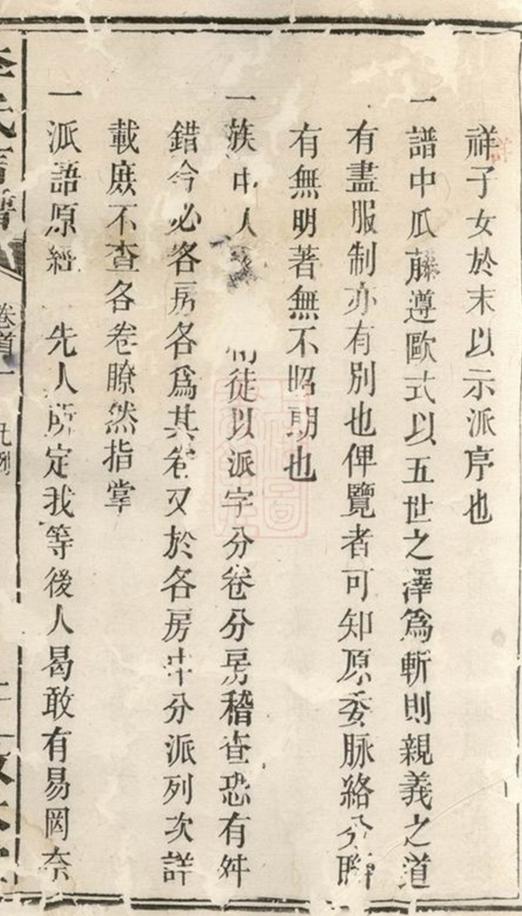 祥子女於末以示派序也
一譜中瓜藤遵歐式以五世之澤爲斬則親義之道
有盡服制亦有別也俾覽者可知原委脉絡分聯
有無明著無不昭朗也
一族中人 徒以派字分卷分房稽查恐有舛
錯今必各房各爲其卷又於各房中分派列次詳
載庶不查各卷瞭然指掌
一派語原經 先人所定我等後人曷敢有易罔奈
李氏 譜 卷首 凡例